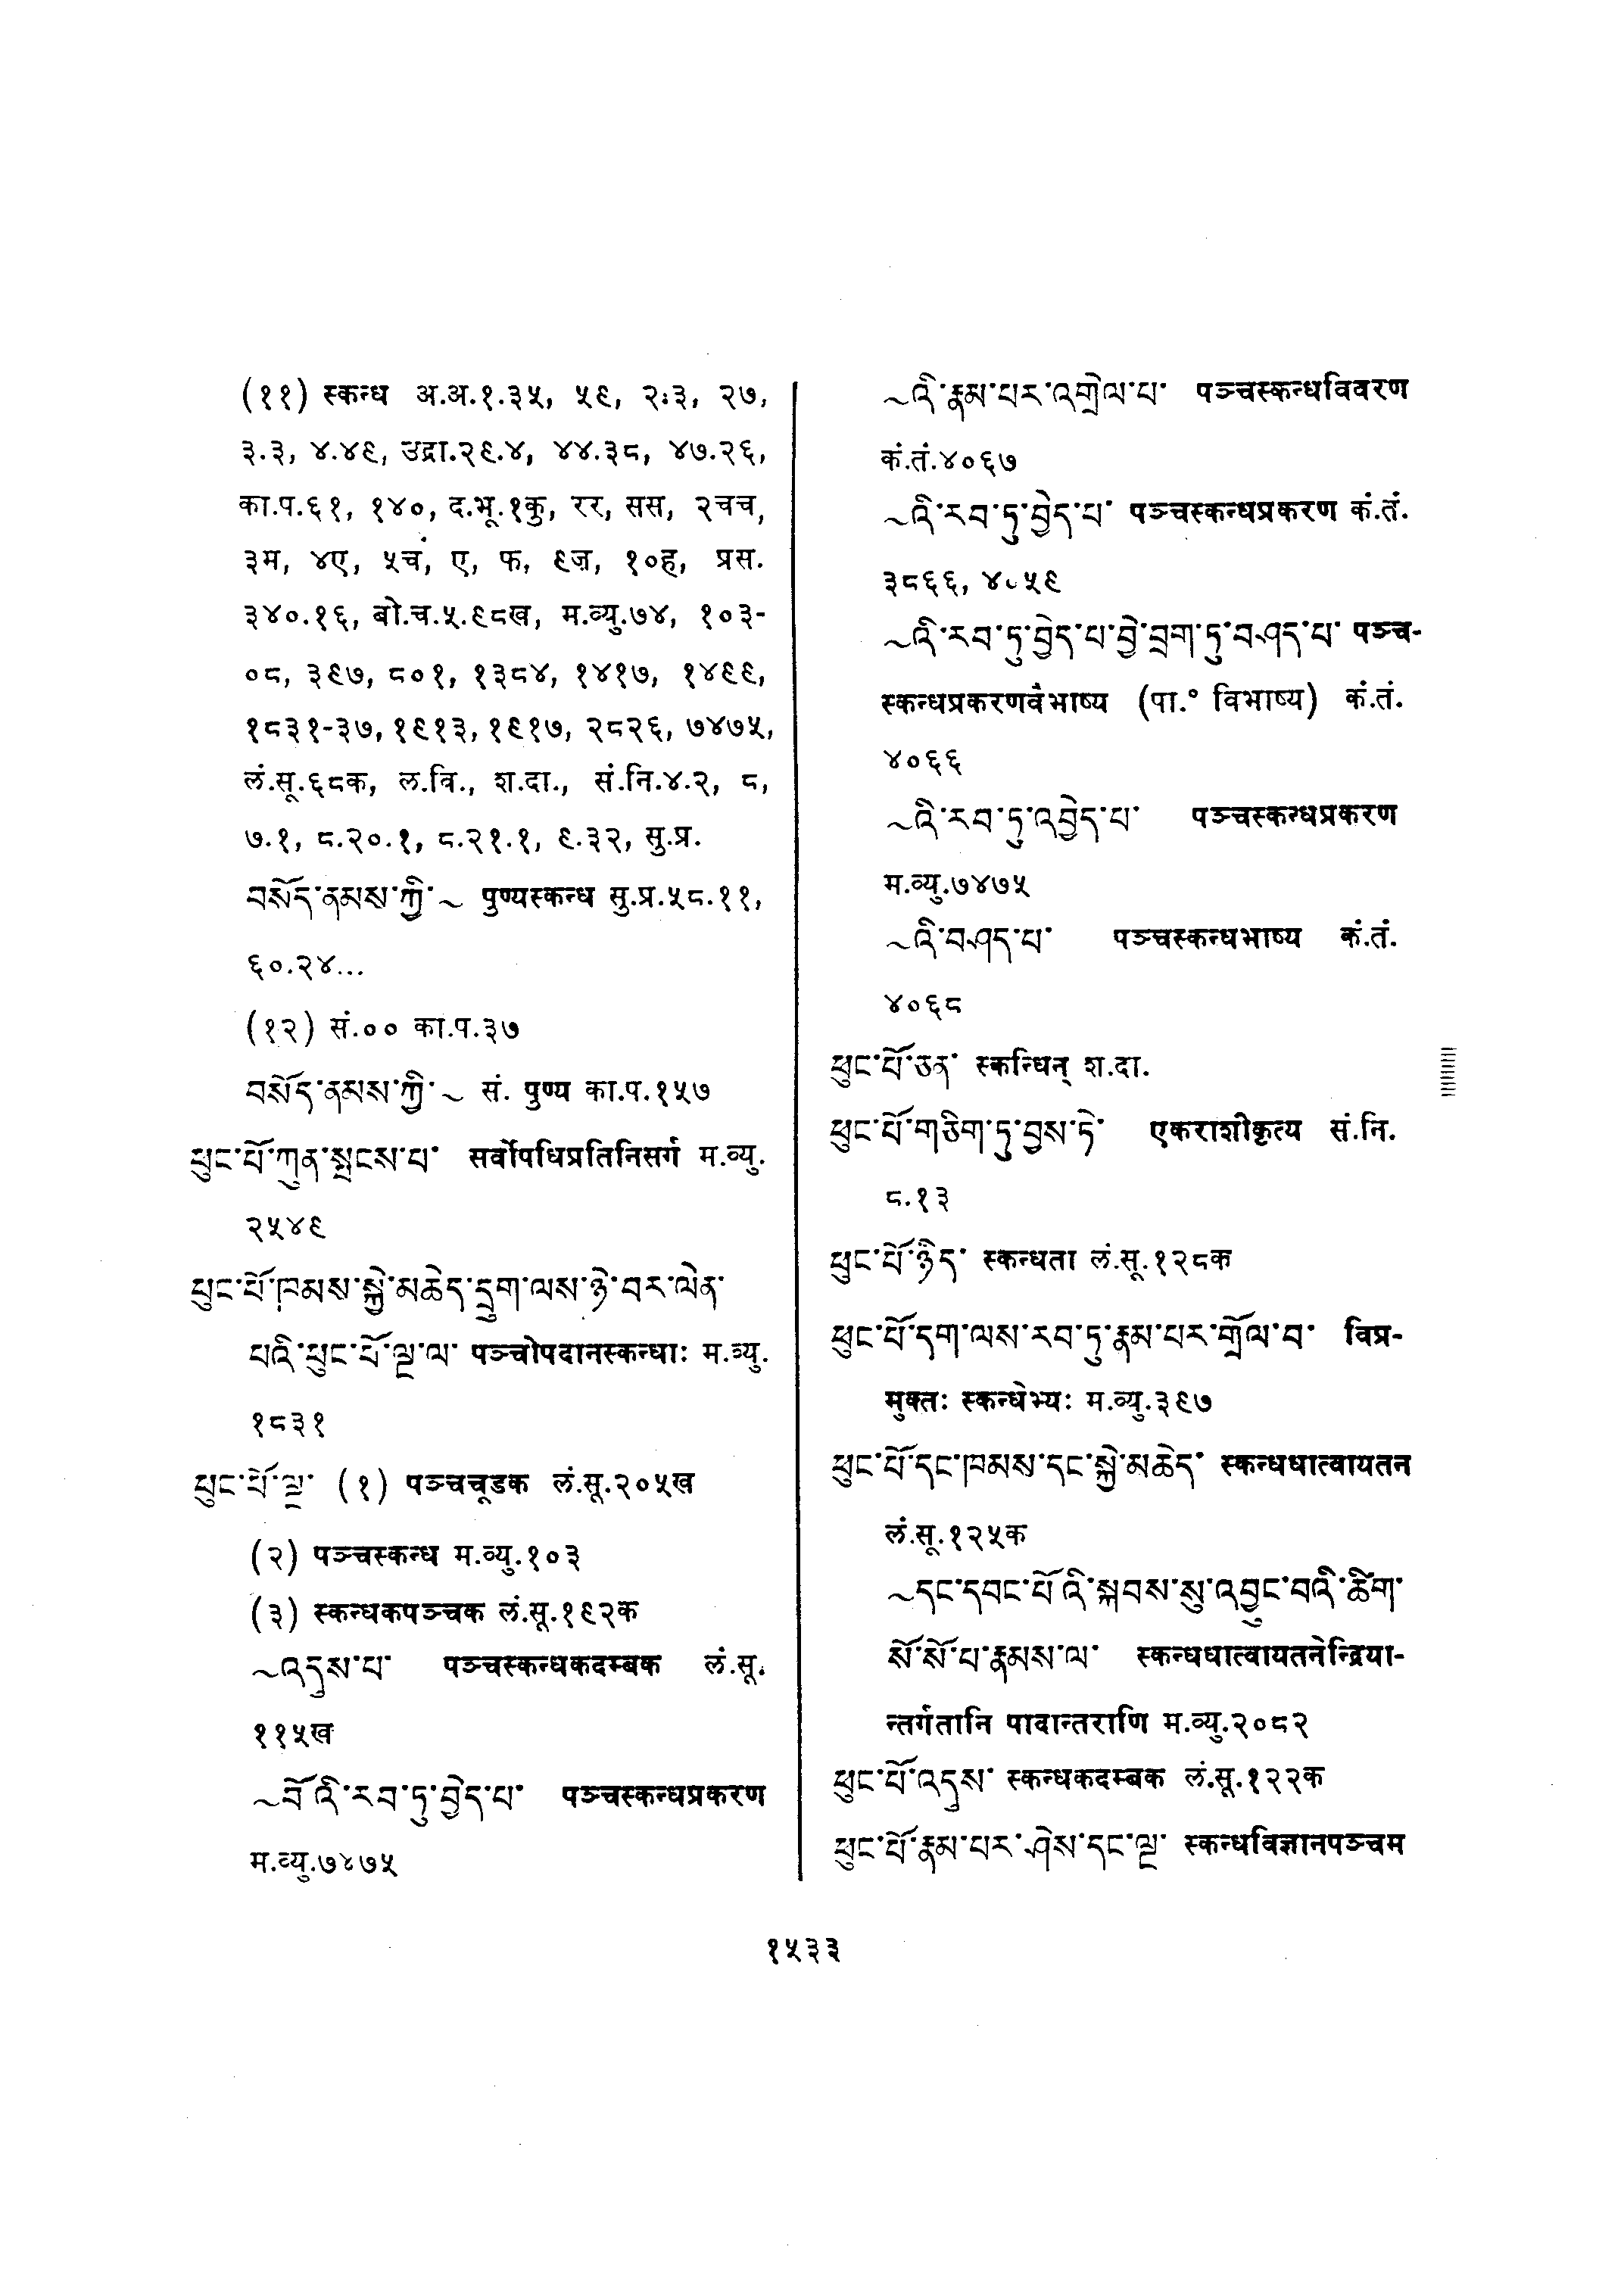 (११) स्कन्ध अ.अ.१.३५, ५९, २ः३, २७,
३.३, ४.४९, उद्रा.२९.४, ४४.३८, ४७.२६,
का.प.६१, १४०, द.भू.१कु, रर, सस, २चच,
३म, ४ए, ५च, ए, फ, ९ज, १०ह, प्रस.
३४०.१६, बो.च.५.९८ख, म.व्यु.७४, १०३-
०८, ३९७, ८०१, १३८४, १४१७, १४९९,
१८३१-३७, १९१३, १९१७, २८२६, ७४७५,
लं.सू.६८क, ल.वि., श.दा., सं.नि.४.२, ८,
७.१, ८.२०.१, ८.२१.१, ९.३२, सु.प्र.
བསོད་ནམས་ཀྱི་~ पुण्यस्कन्ध सु.प्र.५८.११,
६०.२४...
(१२) सं.०० का.प.३७
བསོད་ནམས་ཀྱི་~ सं. पुण्य का.प.१५७
ཕུང་པོ་ཀུན་སྤངས་པ་ सर्वोपधिप्रतिनिसर्ग म.व्यु.
२५४९
ཕུང་པོ་ཁམས་སྐྱེ་མཆེད་དྲུག་ལས་ཉེ་བར་ལེན་
པའི་ཕུང་པོ་ལྔ་ལ་ पञ्चोपदानस्कन्धाः म.व्यु.
१८३१
ཕུང་པོ་ལྔ་ (१) पञ्चचूडक लं.सू.२०५ख
(२) पञ्चस्कन्ध म.व्यु.१०३
(३) स्कन्धकपञ्चक लं.सू.१९२क
~འདུས་པ་ पञ्चस्कन्धकदम्बक लं.सू.
११५ख
~བོའི་རབ་ཏུ་བྱེད་པ་ पञ्चस्कन्धप्रकरण
म.व्यु.७४७५
~འི་རྣམ་པར་འགྲེལ་པ་ पञ्चस्कन्धविवरण
कं.तं.४०६७
~འི་རབ་ཏུ་བྱེད་པ་ पञ्चस्कन्धप्रकरण कं.तं.
३८६६, ४०५९
~འི་རབ་ཏུ་བྱེད་པ་བྱེ་བྲག་ཏུ་བཤད་པ་ पञ्च-
स्कन्धप्रकरणवंभाष्य (पा.° विभाष्य) कं.तं.
४०६६
~འི་རབ་ཏུ་འབྱེད་པ་ पञ्चस्कन्धप्रकरण
म.व्यु.७४७५
~འི་བཤད་པ་ पञ्चस्कन्धभाष्य कं.तं.
४०६८
ཕུང་པོ་ཅན་ स्कन्धिन् श.दा.
ཕུང་པོ་གཅིག་ཏུ་བྱས་ཏེ་ एकराशीकृत्य सं.नि.
८.१३
ཕུང་པོ་ཉིད་ स्कन्धता लं.सू.१२८क
ཕུང་པོ་དག་ལས་རབ་ཏུ་རྣམ་པར་གྲོལ་བ་ विप्र-
मुक्तः स्कन्धेभ्यः म.व्यु.३९७
ཕུང་པོ་དང་ཁམས་དང་སྐྱེ་མཆེད་ स्कन्धधात्वायतन
लं.सू.१२५क
~དང་དབང་པོའི་སྐབས་སུ་འབྱུང་བའི་ཚིག་
སོ་སོ་པ་རྣམས་ལ་ स्कन्धधात्वायतनेन्द्रिया-
न्तर्गतानि पादान्तराणि म.व्यु.२०८२
ཕུང་པོ་འདུས་ स्कन्धकदम्बक लं.सू.१२२क
ཕུང་པོ་རྣམ་པར་ཤེས་དང་ལྔ་ स्कन्धविज्ञानपञ्चम
१५३३